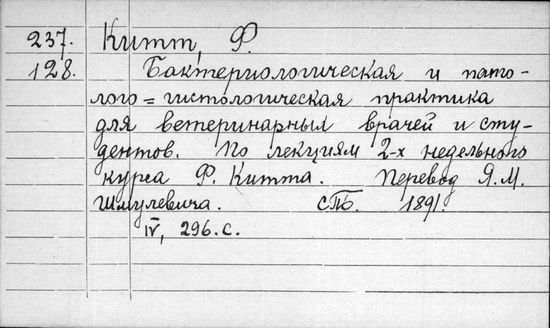 237. Китт, Ф.
128. Бактериологическая и пато-
лого=гистологическая практика
для ветеринарных врачей и сту-
дентов. По лекциям 2-х недельного
курса Ф. Китта. Перевод Я.М.
Шмулевича. СПб. 1891.
IV, 296.с.